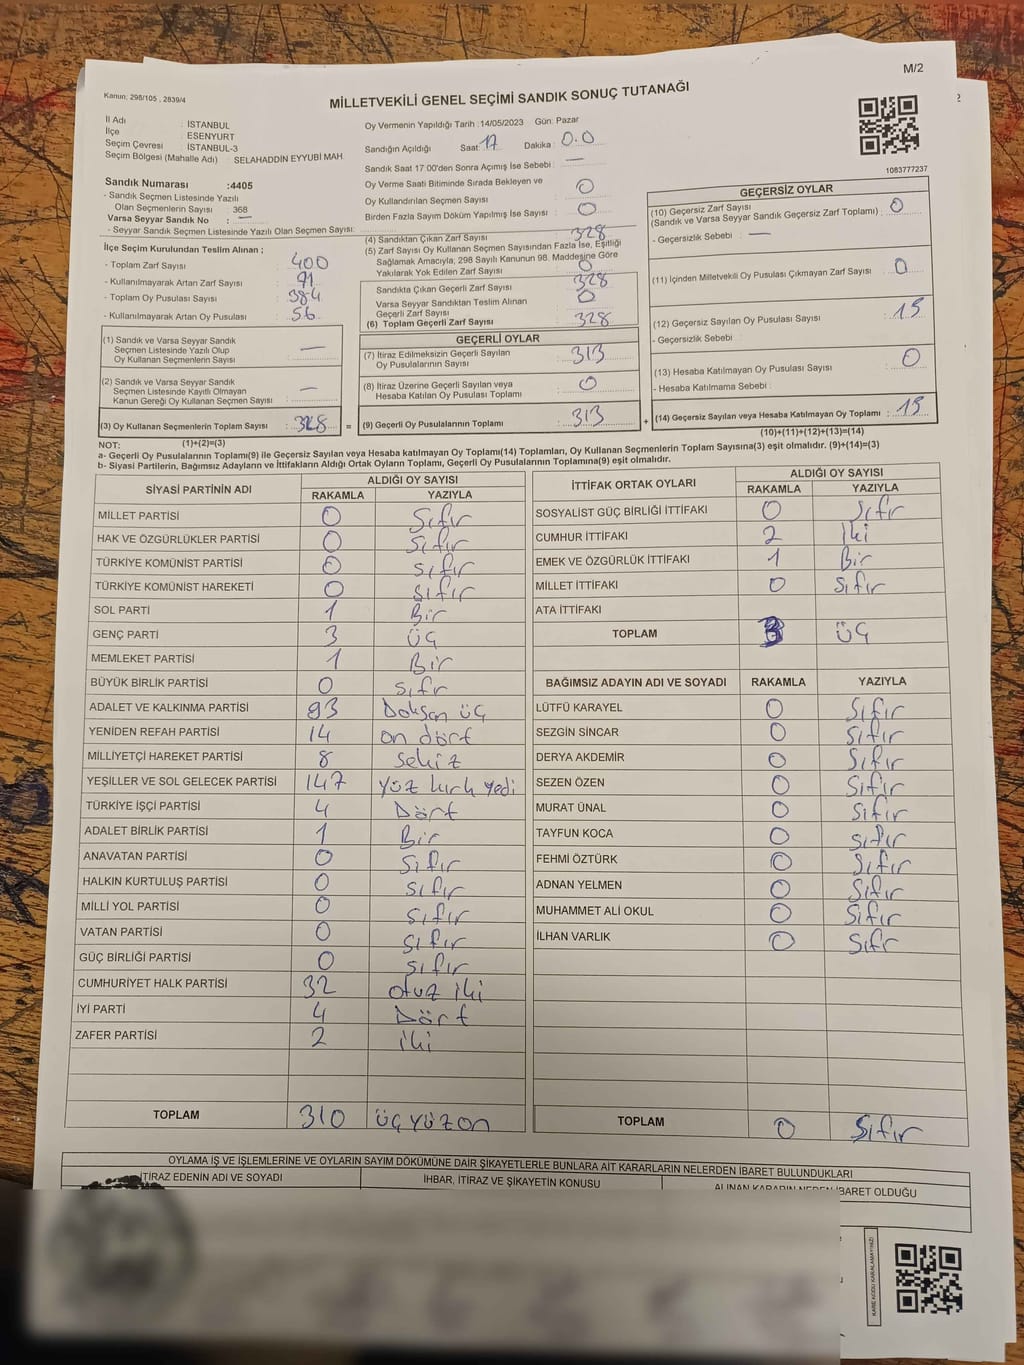 M/2
Kanun; 298/105 , 2839/4
MİLLETVEKİLİ GENEL SEÇİMİ SANDIK SONUÇ TUTANAĞI
İl Adı : İSTANBUL
İlçe : ESENYURT
Seçim Çevresi : İSTANBUL-3
Seçim Bölgesi (Mahalle Adı) : SELAHADDİN EYYUBİ MAH.
Oy Vermenin Yapıldığı Tarih :14/05/2023 Gün: Pazar
Sandığın Açıldığı Saat: 17 Dakika: 0.0
Sandık Saat 17 00'den Sonra Açımış İse Sebebi : —
Oy Verme Saati Bitiminde Sırada Bekleyen ve
Oy Kullandırılan Seçmen Sayısı : 0
Birden Fazla Sayım Döküm Yapılmış İse Sayısı : 0
1083777237
Sandık Numarası :4405
- Sandık Seçmen Listesinde Yazılı
Olan Seçmenlerin Sayısı : 368
Varsa Seyyar Sandık No : —
- Seyyar Sandık Seçmen Listesinde Yazılı Olan Seçmen Sayısı:
İlçe Seçim Kurulundan Teslim Alınan ;
- Toplam Zarf Sayısı : 400
- Kullanılmayarak Artan Zarf Sayısı : 71
- Toplam Oy Pusulası Sayısı : 384
- Kullanılmayarak Artan Oy Pusulası : 56
(1) Sandık ve Varsa Seyyar Sandık
Seçmen Listesinde Yazılı Olup
Oy Kullanan Seçmenlerin Sayısı : —
(2) Sandık ve Varsa Seyyar Sandık
Seçmen Listesinde Kayıtlı Olmayan
Kanun Gereği Oy Kullanan Seçmen Sayısı : —
(3) Oy Kullanan Seçmenlerin Toplam Sayısı : 328 =
(4) Sandıktan Çıkan Zarf Sayısı : 328
(5) Zarf Sayısı Oy Kullanan Seçmen Sayısından Fazla İse, Eşitliği
Sağlamak Amacıyla; 298 Sayılı Kanunun 98. Maddesine Göre
Yakılarak Yok Edilen Zarf Sayısı : 0
Sandıkta Çıkan Geçerli Zarf Sayısı : 328
Varsa Seyyar Sandıktan Teslim Alınan
Geçerli Zarf Sayısı : 0
(6) Toplam Geçerli Zarf Sayısı : 328
GEÇERLİ OYLAR
(7) İtiraz Edilmeksizin Geçerli Sayılan
Oy Pusulalarının Sayısı : 313
(8) İtiraz Üzerine Geçerli Sayılan veya
Hesaba Katılan Oy Pusulası Toplamı : 0
(9) Geçerli Oy Pusulalarının Toplamı : 313 +
GEÇERSİZ OYLAR
(10) Geçersiz Zarf Sayısı
(Sandık ve Varsa Seyyar Sandık Geçersiz Zarf Toplamı) : 0
- Geçersizlik Sebebi : —
(11) İçinden Milletvekili Oy Pusulası Çıkmayan Zarf Sayısı : 0
(12) Geçersiz Sayılan Oy Pusulası Sayısı : 15
- Geçersizlik Sebebi
(13) Hesaba Katılmayan Oy Pusulası Sayısı : 0
- Hesaba Katılmama Sebebi :
(14) Geçersiz Sayılan veya Hesaba Katılmayan Oy Toplamı : 15
NOT: (1)+(2)=(3) (10)+(11)+(12)+(13)=(14)
a- Geçerli Oy Pusulalarının Toplamı(9) ile Geçersiz Sayılan veya Hesaba katılmayan Oy Toplamı(14) Toplamları, Oy Kullanan Seçmenlerin Toplam Sayısına(3) eşit olmalıdır. (9)+(14)=(3)
b- Siyasi Partilerin, Bağımsız Adayların ve İttifakların Aldığı Ortak Oyların Toplamı, Geçerli Oy Pusulalarının Toplamına(9) eşit olmalıdır.
SİYASİ PARTİNİN ADI ALDIĞI OY SAYISI
RAKAMLA YAZIYLA
MİLLET PARTİSİ 0 Sıfır
HAK VE ÖZGÜRLÜKLER PARTİSİ 0 Sıfır
TÜRKİYE KOMÜNİST PARTİSİ 0 sıfır
TÜRKİYE KOMÜNİST HAREKETİ 0 sıfır
SOL PARTİ 1 Bir
GENÇ PARTİ 3 üç
MEMLEKET PARTİSİ 1 Bir
BÜYÜK BİRLİK PARTİSİ 0 sıfr
ADALET VE KALKINMA PARTİSİ 93 Doksan üç
YENİDEN REFAH PARTİSİ 14 on dört
MİLLİYETÇİ HAREKET PARTİSİ 8 sekiz
YEŞİLLER VE SOL GELECEK PARTİSİ 147 yüz kırk yedi
TÜRKİYE İŞÇİ PARTİSİ 4 Dört
ADALET BİRLİK PARTİSİ 1 Bir
ANAVATAN PARTİSİ 0 sıfır
HALKIN KURTULUŞ PARTİSİ 0 sıfır
MİLLİ YOL PARTİSİ 0 sıfır
VATAN PARTİSİ 0 sıfır
GÜÇ BİRLİĞİ PARTİSİ 0 sıfır
CUMHURİYET HALK PARTİSİ 32 otuz iki
İYİ PARTİ 4 Dört
ZAFER PARTİSİ 2 iki
TOPLAM 310 üç yüz on
İTTİFAK ORTAK OYLARI ALDIĞI OY SAYISI
RAKAMLA YAZIYLA
SOSYALİST GÜÇ BİRLİĞİ İTTİFAKI 0 Sıfır
CUMHUR İTTİFAKI 2 iki
EMEK VE ÖZGÜRLÜK İTTİFAKI 1 Bir
MİLLET İTTİFAKI 0 sıfır
ATA İTTİFAKI
TOPLAM 3 üç
BAĞIMSIZ ADAYIN ADI VE SOYADI RAKAMLA YAZIYLA
LÜTFÜ KARAYEL 0 Sıfır
SEZGİN SİNCAR 0 Sıfır
DERYA AKDEMİR 0 Sıfır
SEZEN ÖZEN 0 Sıfır
MURAT ÜNAL 0 Sıfır
TAYFUN KOCA 0 sıfır
FEHMİ ÖZTÜRK 0 Sıfır
ADNAN YELMEN 0 Sıfır
MUHAMMET ALİ OKUL 0 Sıfır
İLHAN VARLIK 0 Sıfr
TOPLAM 0 Sıfır
OYLAMA İŞ VE İŞLEMLERİNE VE OYLARIN SAYIM DÖKÜMÜNE DAİR ŞİKAYETLERLE BUNLARA AİT KARARLARIN NELERDEN İBARET BULUNDUKLARI
İTİRAZ EDENİN ADI VE SOYADI İHBAR, İTİRAZ VE ŞİKAYETİN KONUSU ALINAN KARARIN NEDEN İBARET OLDUĞU
KARE KODU KARALAMAYINIZ!